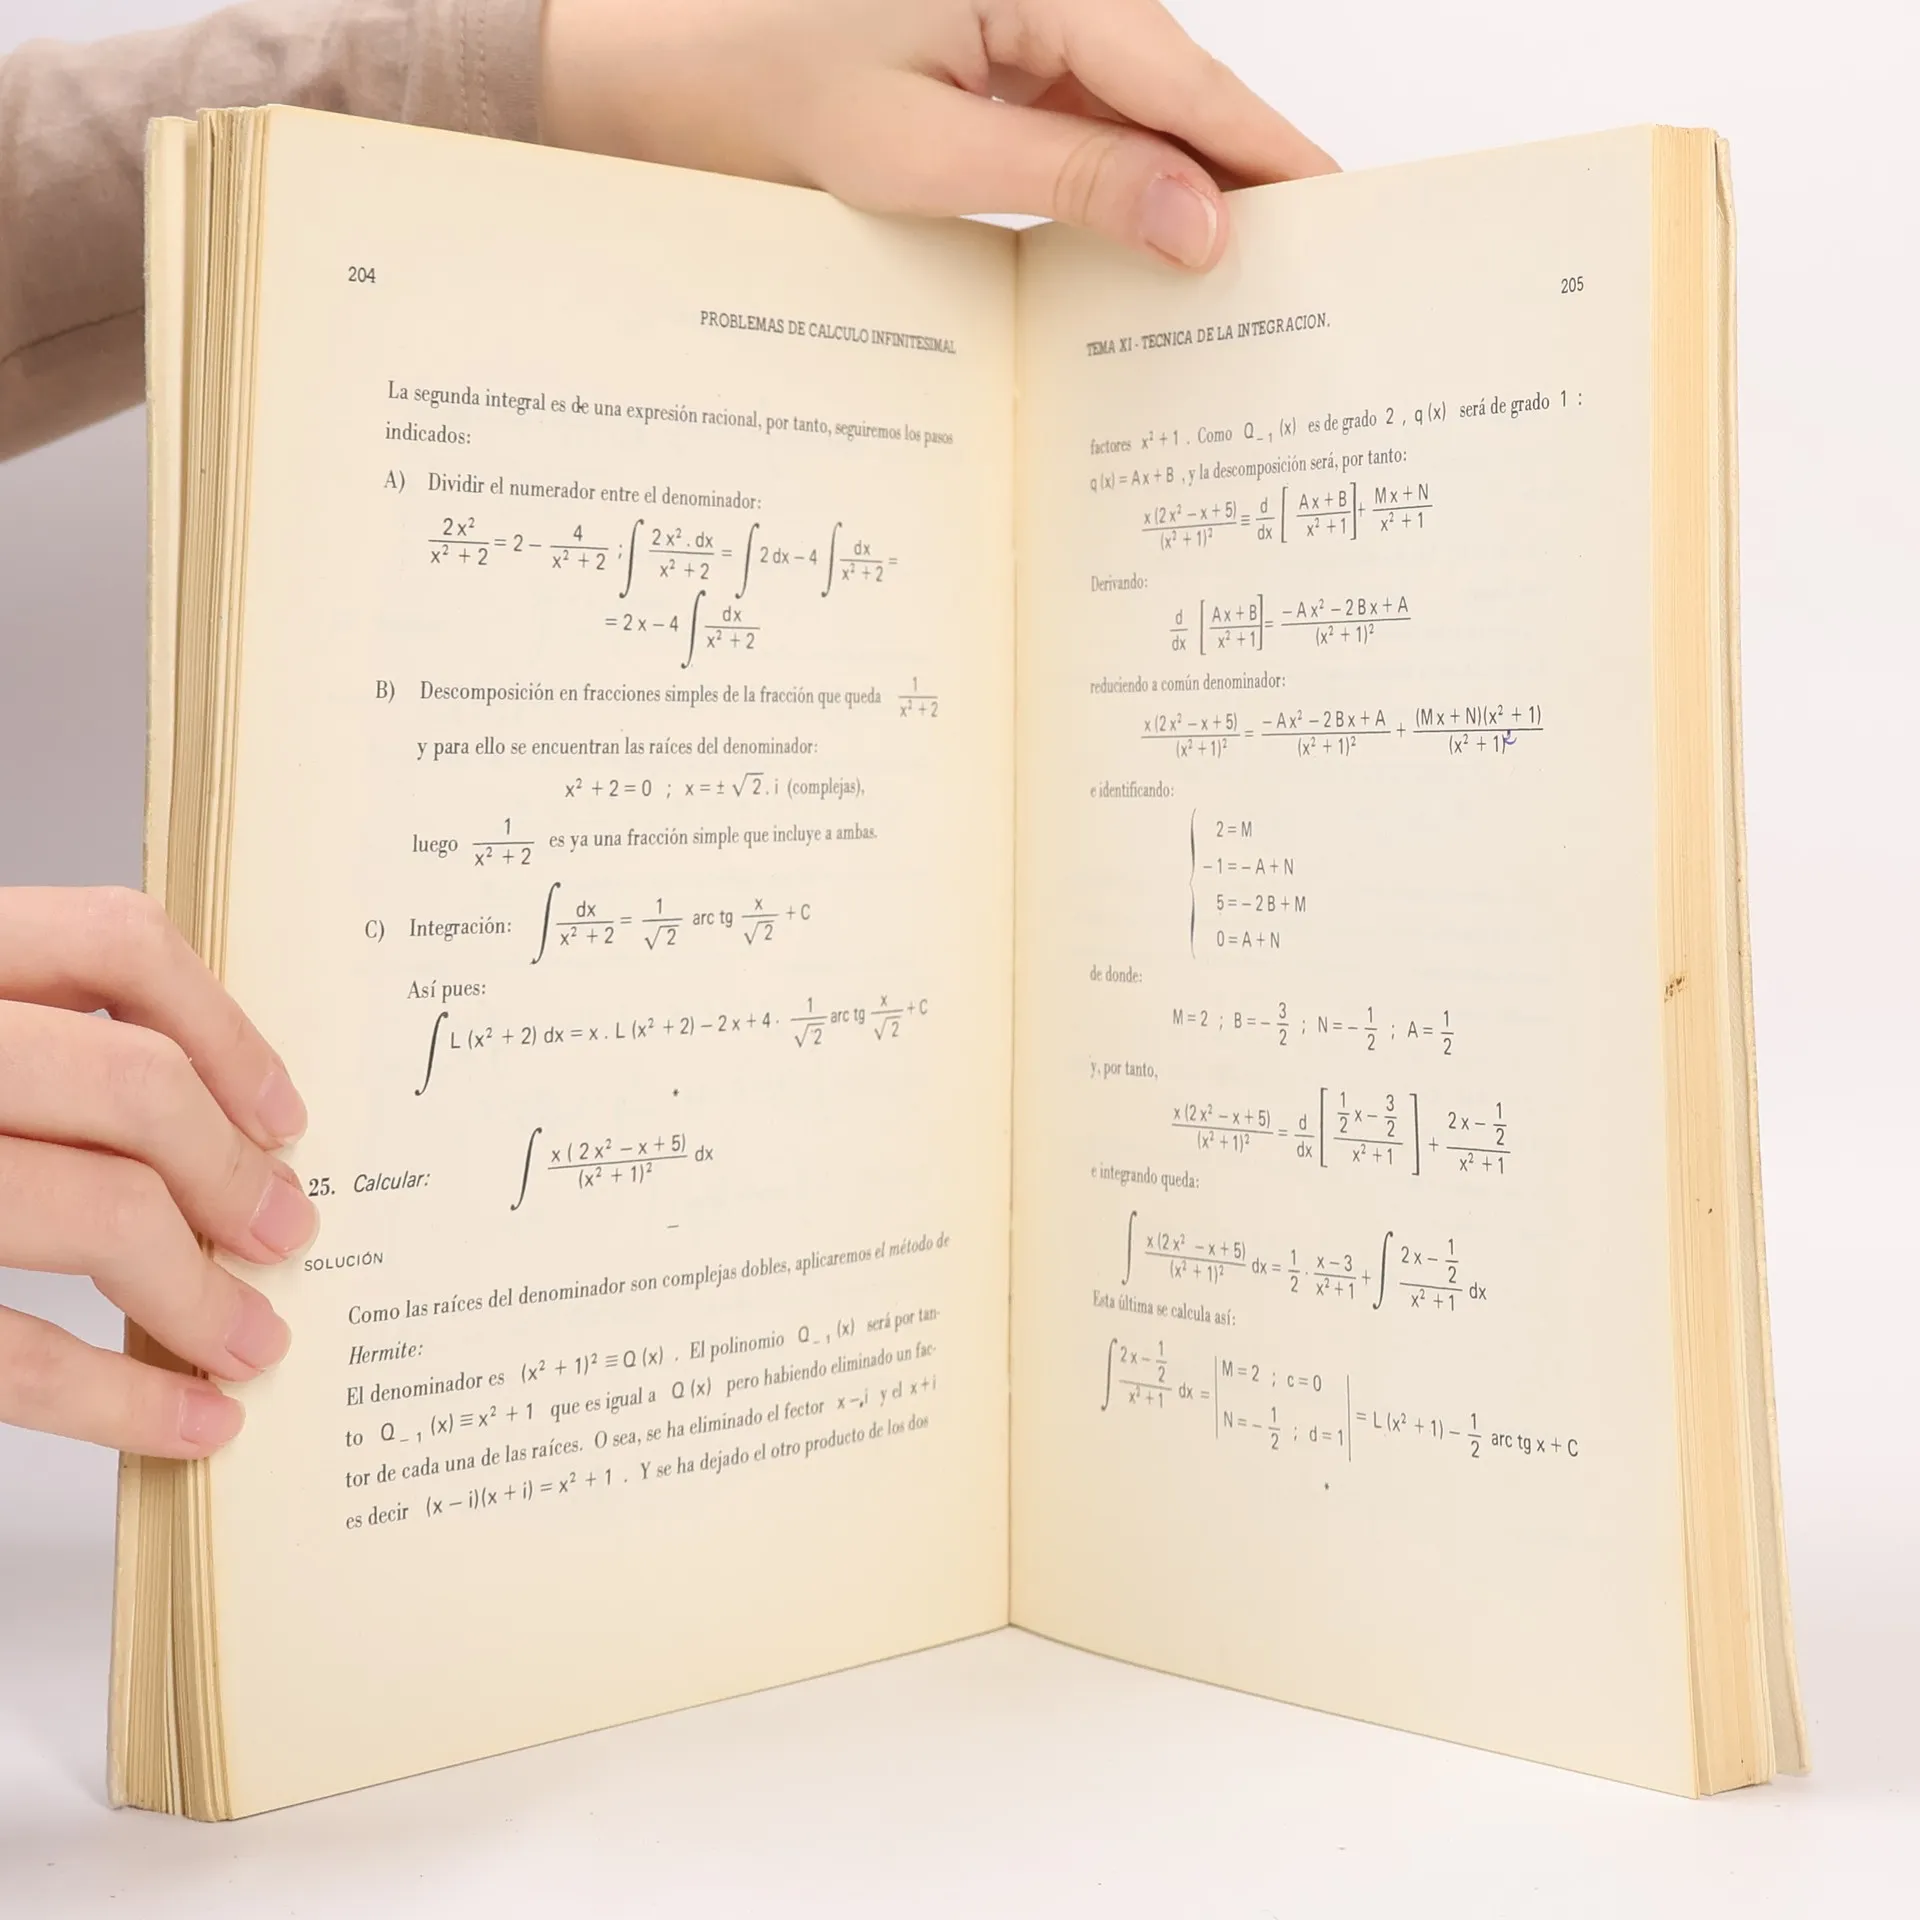 204
PROBLEMAS DE CALCULO INFINITESIMAL
La segunda integral es de una expresión racional, por tanto, seguiremos los pasos
indicados:
A) Dividir el numerador entre el denominador:
2x² / (x² + 2) = 2 − 4 / (x² + 2) ; ∫ 2x² . dx / (x² + 2) = ∫ 2 dx − 4 ∫ dx / (x² + 2) =
= 2x − 4 ∫ dx / (x² + 2)
B) Descomposición en fracciones simples de la fracción que queda 1 / (x² + 2)
y para ello se encuentran las raíces del denominador:
x² + 2 = 0 ; x = ± √2 . i (complejas),
luego 1 / (x² + 2) es ya una fracción simple que incluye a ambas.
C) Integración: ∫ dx / (x² + 2) = 1/√2 arc tg x/√2 + C
Así pues:
∫ L (x² + 2) dx = x . L (x² + 2) − 2x + 4 . 1/√2 arc tg x/√2 + C
25. Calcular: ∫ x (2x² − x + 5) / (x² + 1)² dx
SOLUCIÓN
Como las raíces del denominador son complejas dobles, aplicaremos el método de
Hermite:
El denominador es (x² + 1)² ≡ Q (x) . El polinomio Q₋₁ (x) será por tan-
to Q₋₁ (x) ≡ x² + 1 que es igual a Q (x) pero habiendo eliminado un fac-
tor de cada una de las raíces. O sea, se ha eliminado el fector x −,i y el x + i
es decir (x − i)(x + i) = x² + 1 . Y se ha dejado el otro producto de los dos
205
TEMA XI - TECNICA DE LA INTEGRACION.
factores x² + 1 . Como Q₋₁ (x) es de grado 2 , q (x) será de grado 1 :
q (x) = Ax + B , y la descomposición será, por tanto:
x (2x² − x + 5) / (x² + 1)² ≡ d/dx [ (Ax + B) / (x² + 1) ] + (Mx + N) / (x² + 1)
Derivando:
d/dx [ (Ax + B) / (x² + 1) ] = (−Ax² − 2Bx + A) / (x² + 1)²
reduciendo a común denominador:
x (2x² − x + 5) / (x² + 1)² = (−Ax² − 2Bx + A) / (x² + 1)² + (Mx + N)(x² + 1) / (x² + 1)²
e identificando:
2 = M
−1 = −A + N
5 = −2B + M
0 = A + N
de donde:
M = 2 ; B = −3/2 ; N = −1/2 ; A = 1/2
y, por tanto,
x (2x² − x + 5) / (x² + 1)² = d/dx [ (1/2 x − 3/2) / (x² + 1) ] + (2x − 1/2) / (x² + 1)
e integrando queda:
∫ x (2x² − x + 5) / (x² + 1)² dx = 1/2 . (x − 3) / (x² + 1) + ∫ (2x − 1/2) / (x² + 1) dx
Esta última se calcula así:
∫ (2x − 1/2) / (x² + 1) dx = | M = 2 ; c = 0 N = −1/2 ; d = 1 | = L (x² + 1) − 1/2 arc tg x + C